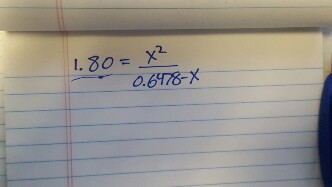 1.80 = x²/0.6478-x